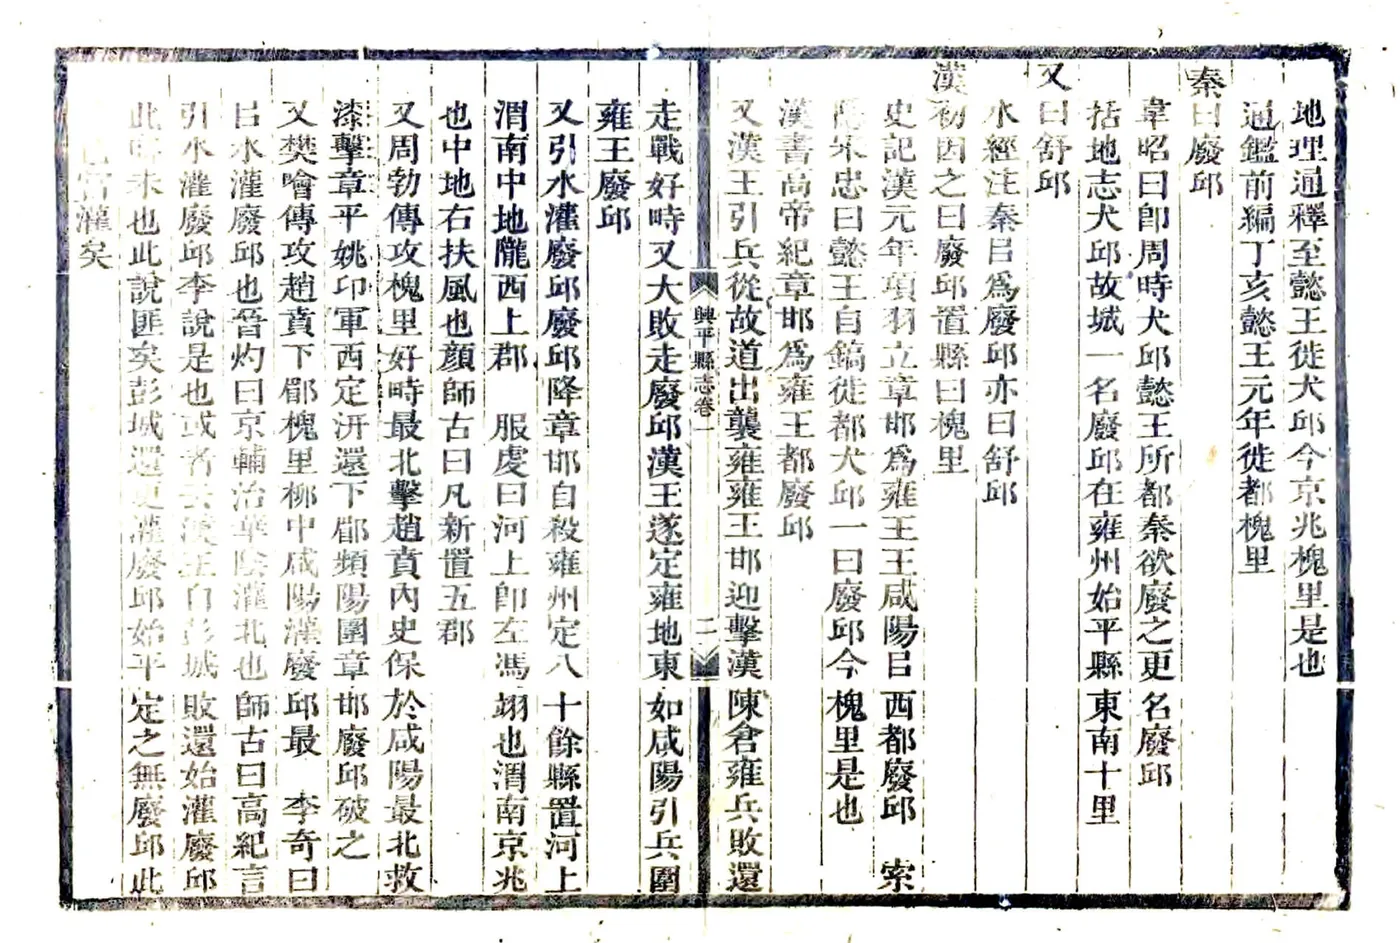 地理通釋至懿王徙犬邱今京兆槐里是也
通鑑前編丁亥懿王元年徙都槐里
秦曰廢邱
韋昭曰卽周時犬邱懿王所都秦欲廢之更名廢邱
括地志犬邱故城一名廢邱在雍州始平縣東南十里
又曰舒邱
水經注秦㠯爲廢邱亦曰舒邱
漢初因之曰廢邱置縣曰槐里
史記漢元年項羽立章邯爲雍王王咸陽㠯西都廢邱 索
隱宋忠曰懿王自鎬徙都犬邱一曰廢邱今槐里是也
漢書高帝紀章邯爲雍王都廢邱
又漢王引兵從故道出襲雍雍王邯迎擊漢陳倉雍兵敗還
興平縣志卷一 二
走戰好畤又大敗走廢邱漢王遂定雍地東如咸陽引兵圍
雍王廢邱
又引水灌廢邱廢邱降章邯自殺雍州定八十餘縣置河上
渭南中地隴西上郡 服虔曰河上卽左馮翊也渭南京兆
也中地右扶風也顏師古曰凡新置五郡
又周勃傳攻槐里好畤最北擊趙賁內史保於咸陽最北救
漆擊章平姚卬軍西定汧還下郿頻陽圍章邯廢邱破之
又樊噲傳攻趙賁下郿槐里柳中咸陽灌廢邱最 李奇曰
㠯水灌廢邱也晉灼曰京輔治華陰灌北也師古曰高紀言
引水灌廢邱李說是也或者云漢王自彭城敗還始灌廢邱
此時未也此說匪矣彭城還更灌廢邱始平定之無廢邱此
宮灌矣